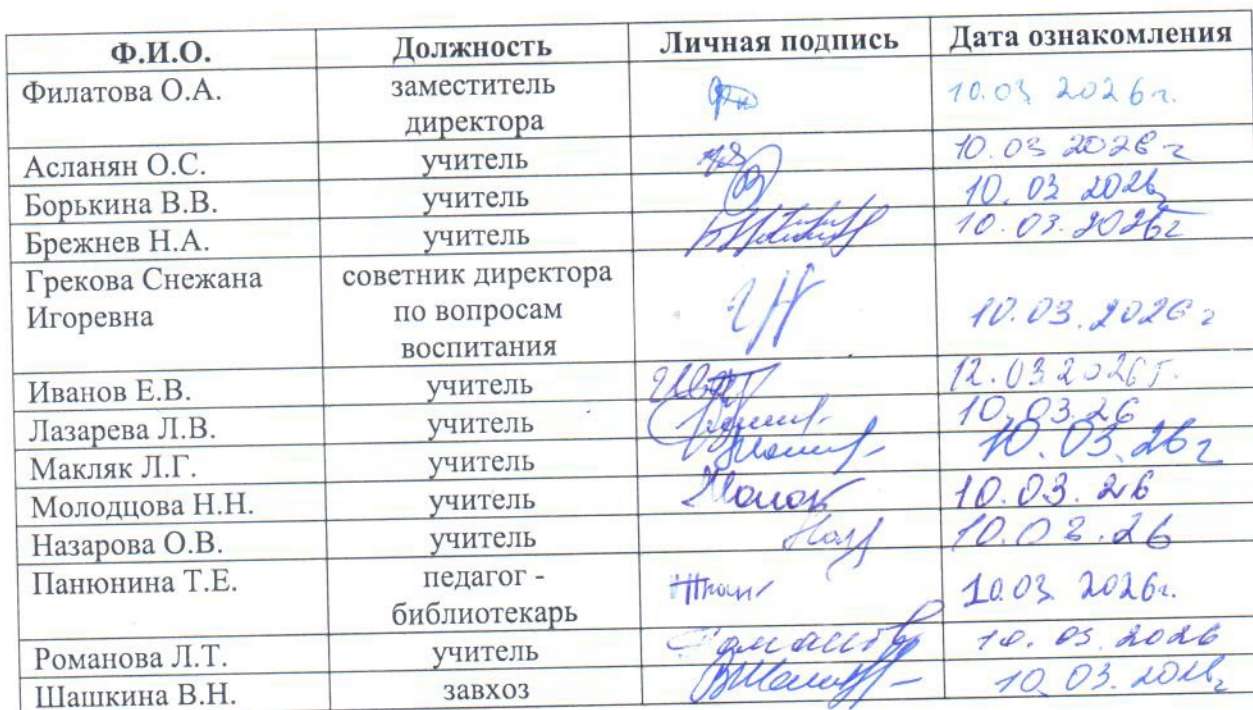 Ф.И.О. Должность Личная подпись Дата ознакомления
Филатова О.А. заместитель директора 10.03 2026г.
Асланян О.С. учитель 10.03 2026г
Борькина В.В. учитель 10.03 2026г
Брежнев Н.А. учитель 10.03.2026г
Грекова Снежана Игоревна советник директора по вопросам воспитания 10.03.2026г
Иванов Е.В. учитель 12.03 2026г.
Лазарева Л.В. учитель 10.03.26
Макляк Л.Г. учитель 10.03.26г
Молодцова Н.Н. учитель 10.03.26
Назарова О.В. учитель 10.03.26
Панюнина Т.Е. педагог - библиотекарь 10.03 2026г.
Романова Л.Т. учитель 10.03.2026
Шашкина В.Н. завхоз 10.03.2026г